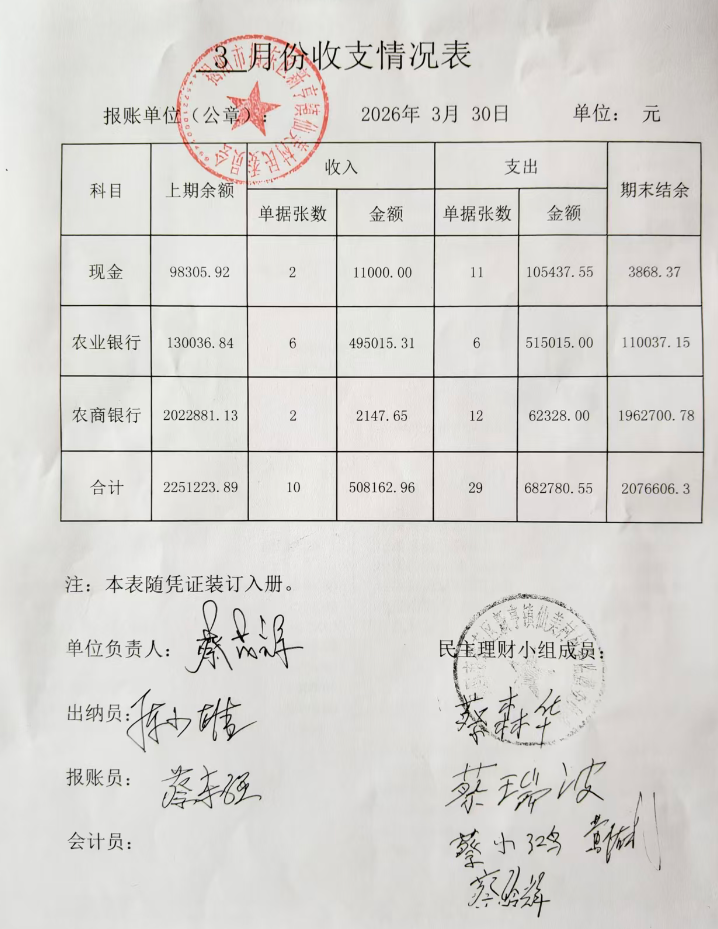 3 月份收支情况表
报账单位（公章）： 2026年 3月 30日 单位： 元
科目 上期余额 收入 支出 期末结余
单据张数 金额 单据张数 金额
现金 98305.92 2 11000.00 11 105437.55 3868.37
农业银行 130036.84 6 495015.31 6 515015.00 110037.15
农商银行 2022881.13 2 2147.65 12 62328.00 1962700.78
合计 2251223.89 10 508162.96 29 682780.55 2076606.3
注：本表随凭证装订入册。
单位负责人： 民主理财小组成员：
出纳员： 蔡森华
报账员： 蔡瑞波
会计员： 蔡小鸿